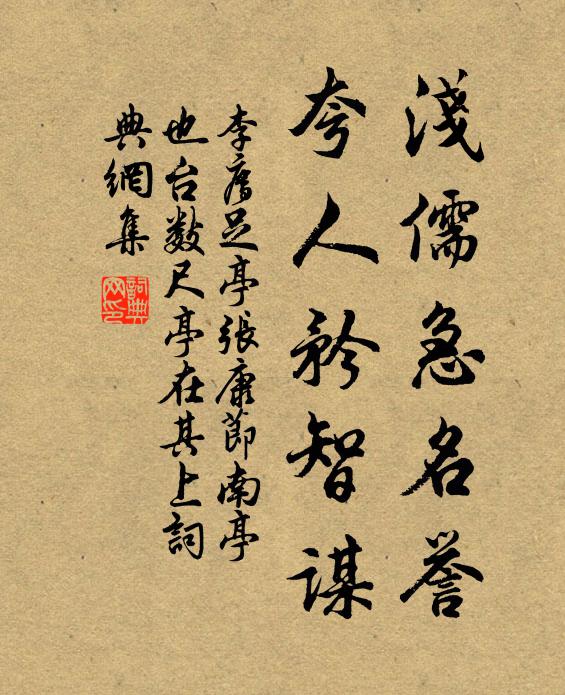 淺儒急名誉
夸人矜智謀
李唐足亭張康節南亭
也台数尺亭在其上詞
典網集
詞典网印